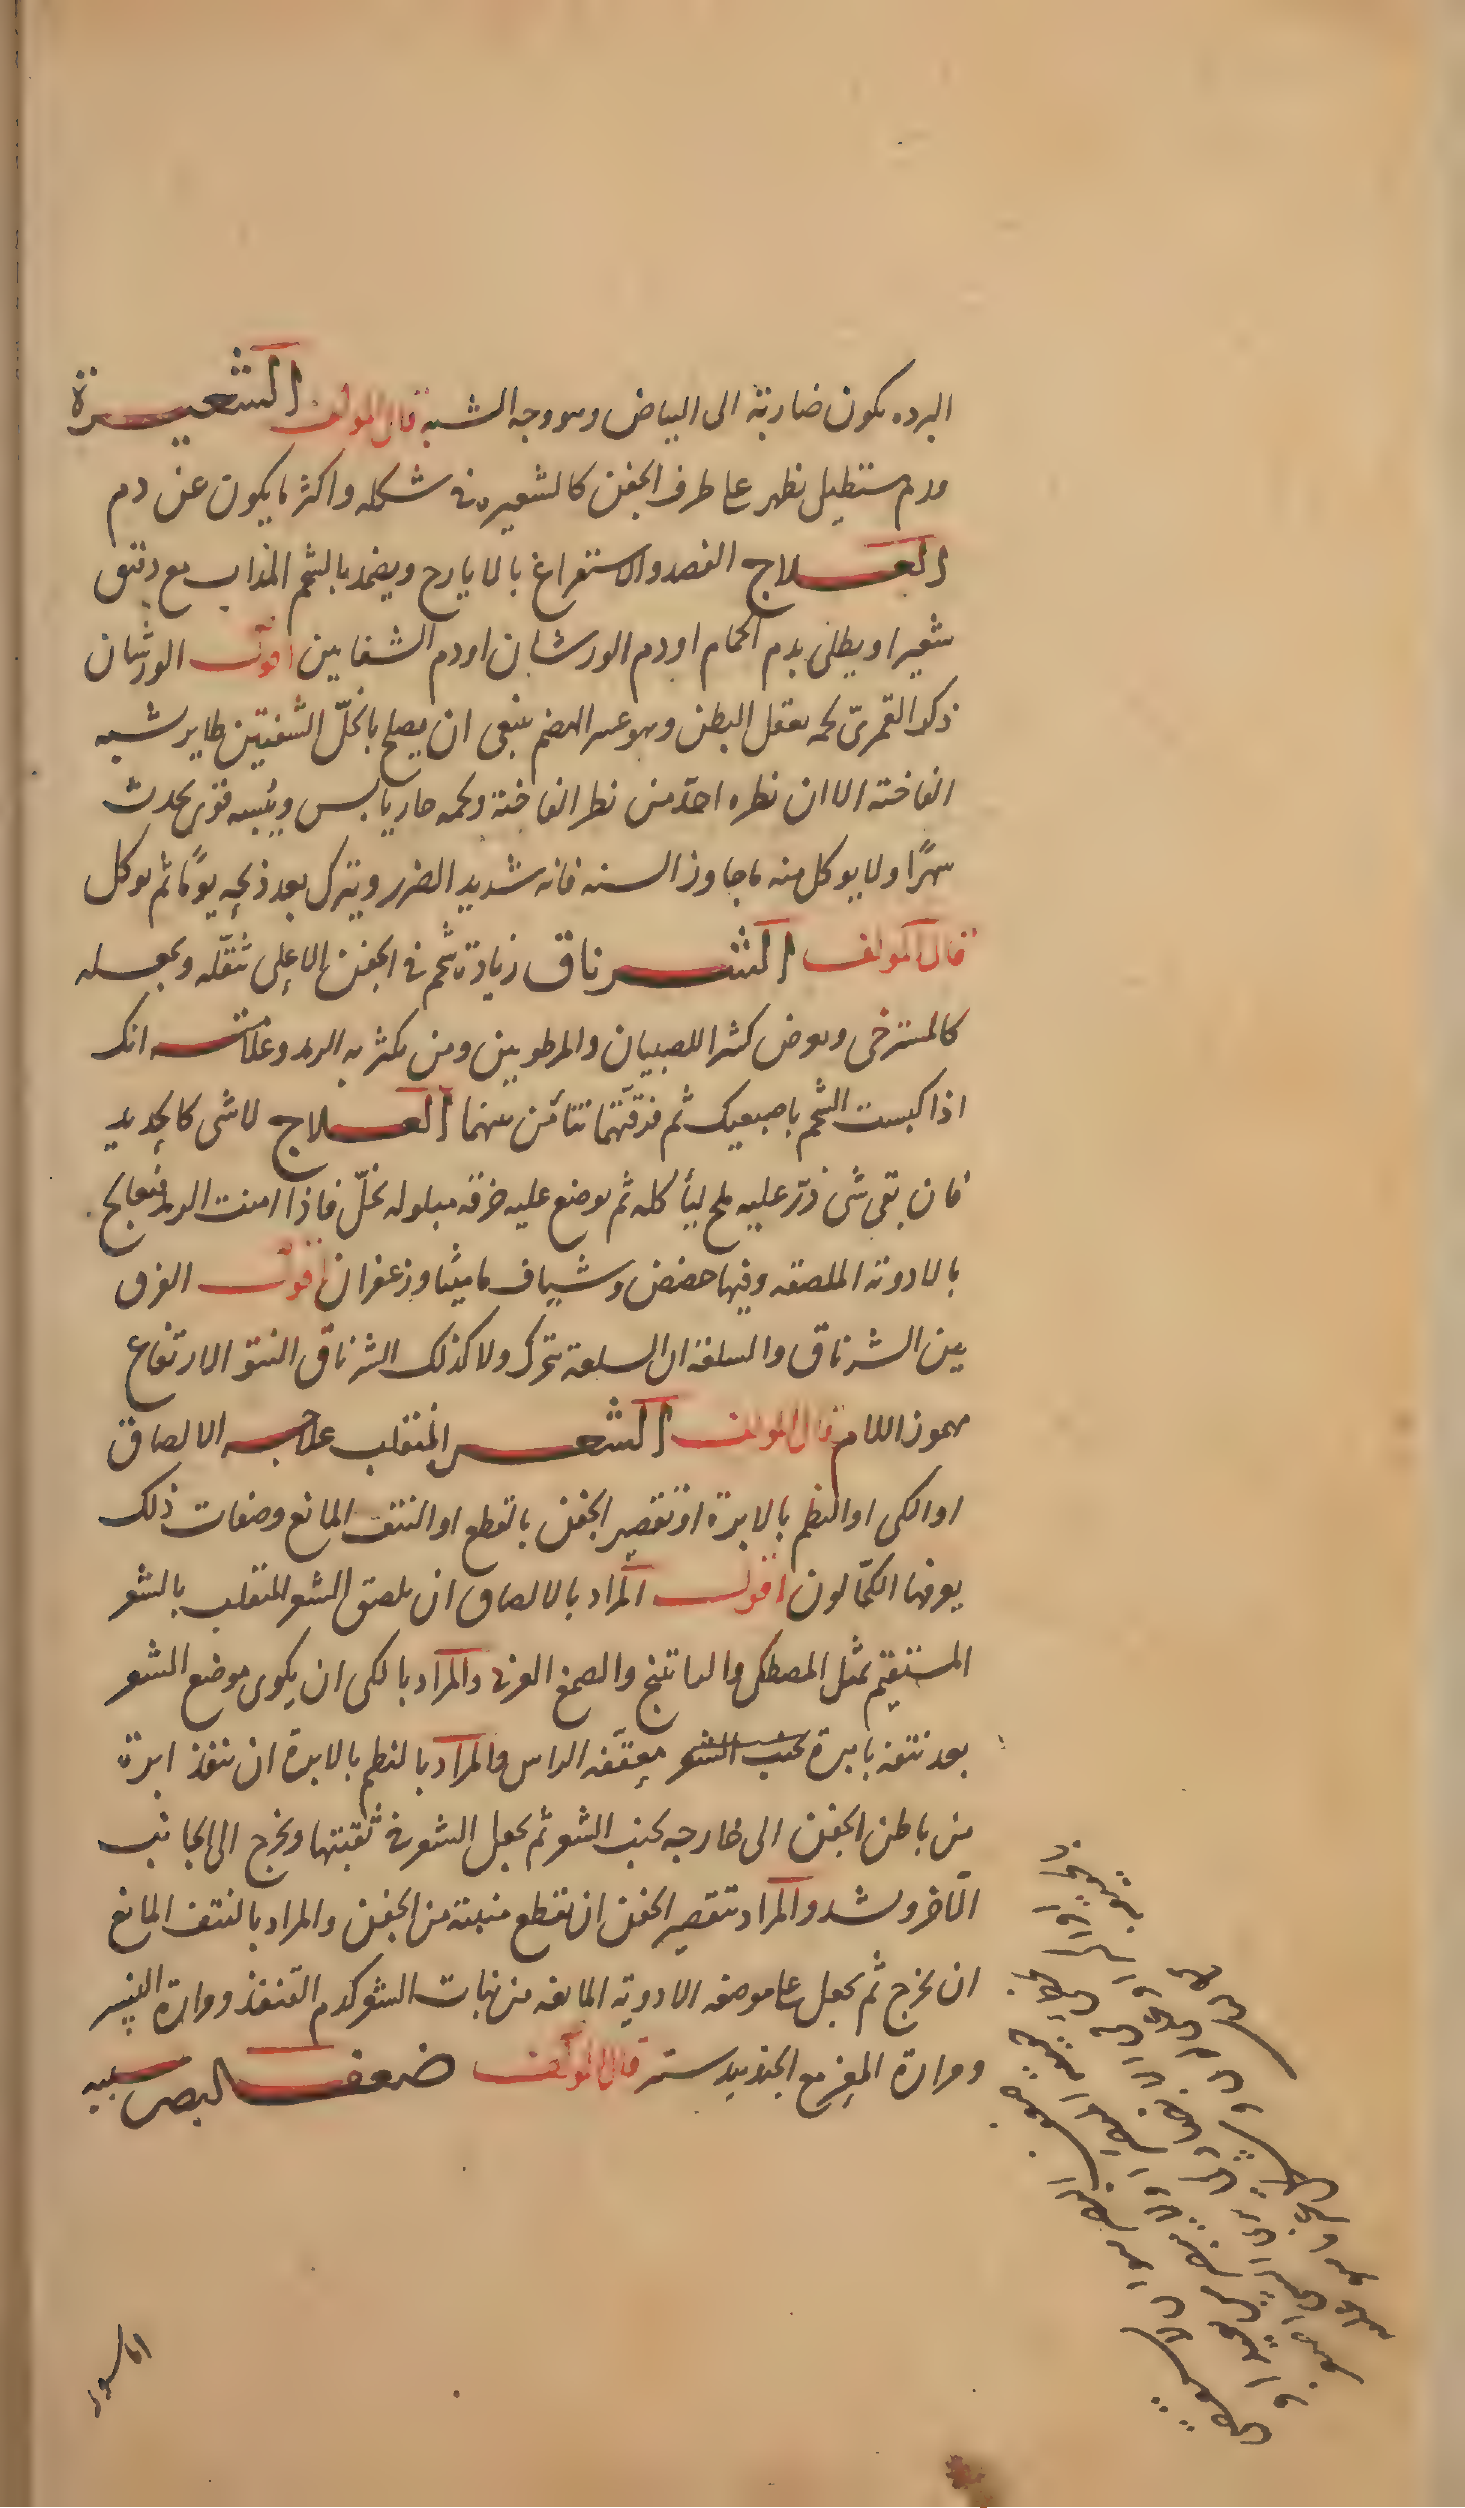 البرده يكون ضاربة الى البياض وهو وجه الشبه قال المولف الشعيرة
ورم مستطيل يظهر على طرف الجفن كالشعيره فى شكله واكثر ما يكون عن دم
العلاج الفصد والاستفراغ بالايارج ويضمد بالشحم المذاب مع دقيق
شعير او يطلى بدم الحمام او دم الورشان او دم الشفانين اقول الورشان
ذكر القمرىّ لحمه يعقل البطن وهو عسر الهضم ينبغى ان يصلح بالخلّ الشفنين طاير شبيه
الفاخته الا ان نظره احدّ من نظر الفاختة ولحمه حار يابس ويبسه قوى يحدث
سهرًا ولا يوكل منه ما جاوز السنه فانه شديد الضرر ويترك بعد ذبحه يومًا ثم يوكل
قال المولف الشرناق زيادة شحم فى الجفن الاعلى تثقّله وتجعله
كالمسترخى ويعرض كثيرا للصبيان والمرطوبين ومن يكثر به الرمد وعلامته انك
اذا كبست الشحم باصبعيك ثم فرقتهما نتأ من بينهما العلاج لا شى كالحديد
فان بقى شى ذرّ عليه ملح ليأكله ثم يوضع عليه خرقه مبلوله بخلّ فاذا امنت الرمد فعالج
بالادوية الملصقه وفيها حضض وشياف ماميثا وزعفران اقول الفرق
بين الشرناق والسلعة ان السلعة تتحرك ولا كذلك الشرناق النتو الارتفاع
مهموز اللام قال المولف الشعر المنقلب علاجه الالصاق
او الكى او النظم بالابرة او تقصير الجفن بالقطع او النتف المانع وصفات ذلك
يعرفها الكحّالون اقول المراد بالالصاق ان يلصق الشعر المنقلب بالشعر
المستقيم بمثل المصطكى والراتينج والصمغ العربى والمراد بالكى ان يكوى موضع الشعر
بعد نتفه بابرة بجنب الشعر معقّفه الراس والمراد بالنظم بالابرة ان تنفذ ابرة
من باطن الجفن الى خارجه بجنب الشعر ثم يجعل الشعر فى ثقبتها ويخرج الى الجانب
الآخر ويشد والمراد تقصير الجفن ان يقطع منبته من الجفن والمراد بالنتف المانع
ان يخرج ثم يجعل على موضعه الادوية المانعه من نبات الشعر كدم القنفذ ومرارة النسر
ومرارة المعز مع الجندبيدستر قال المولف ضعف البصر سببه